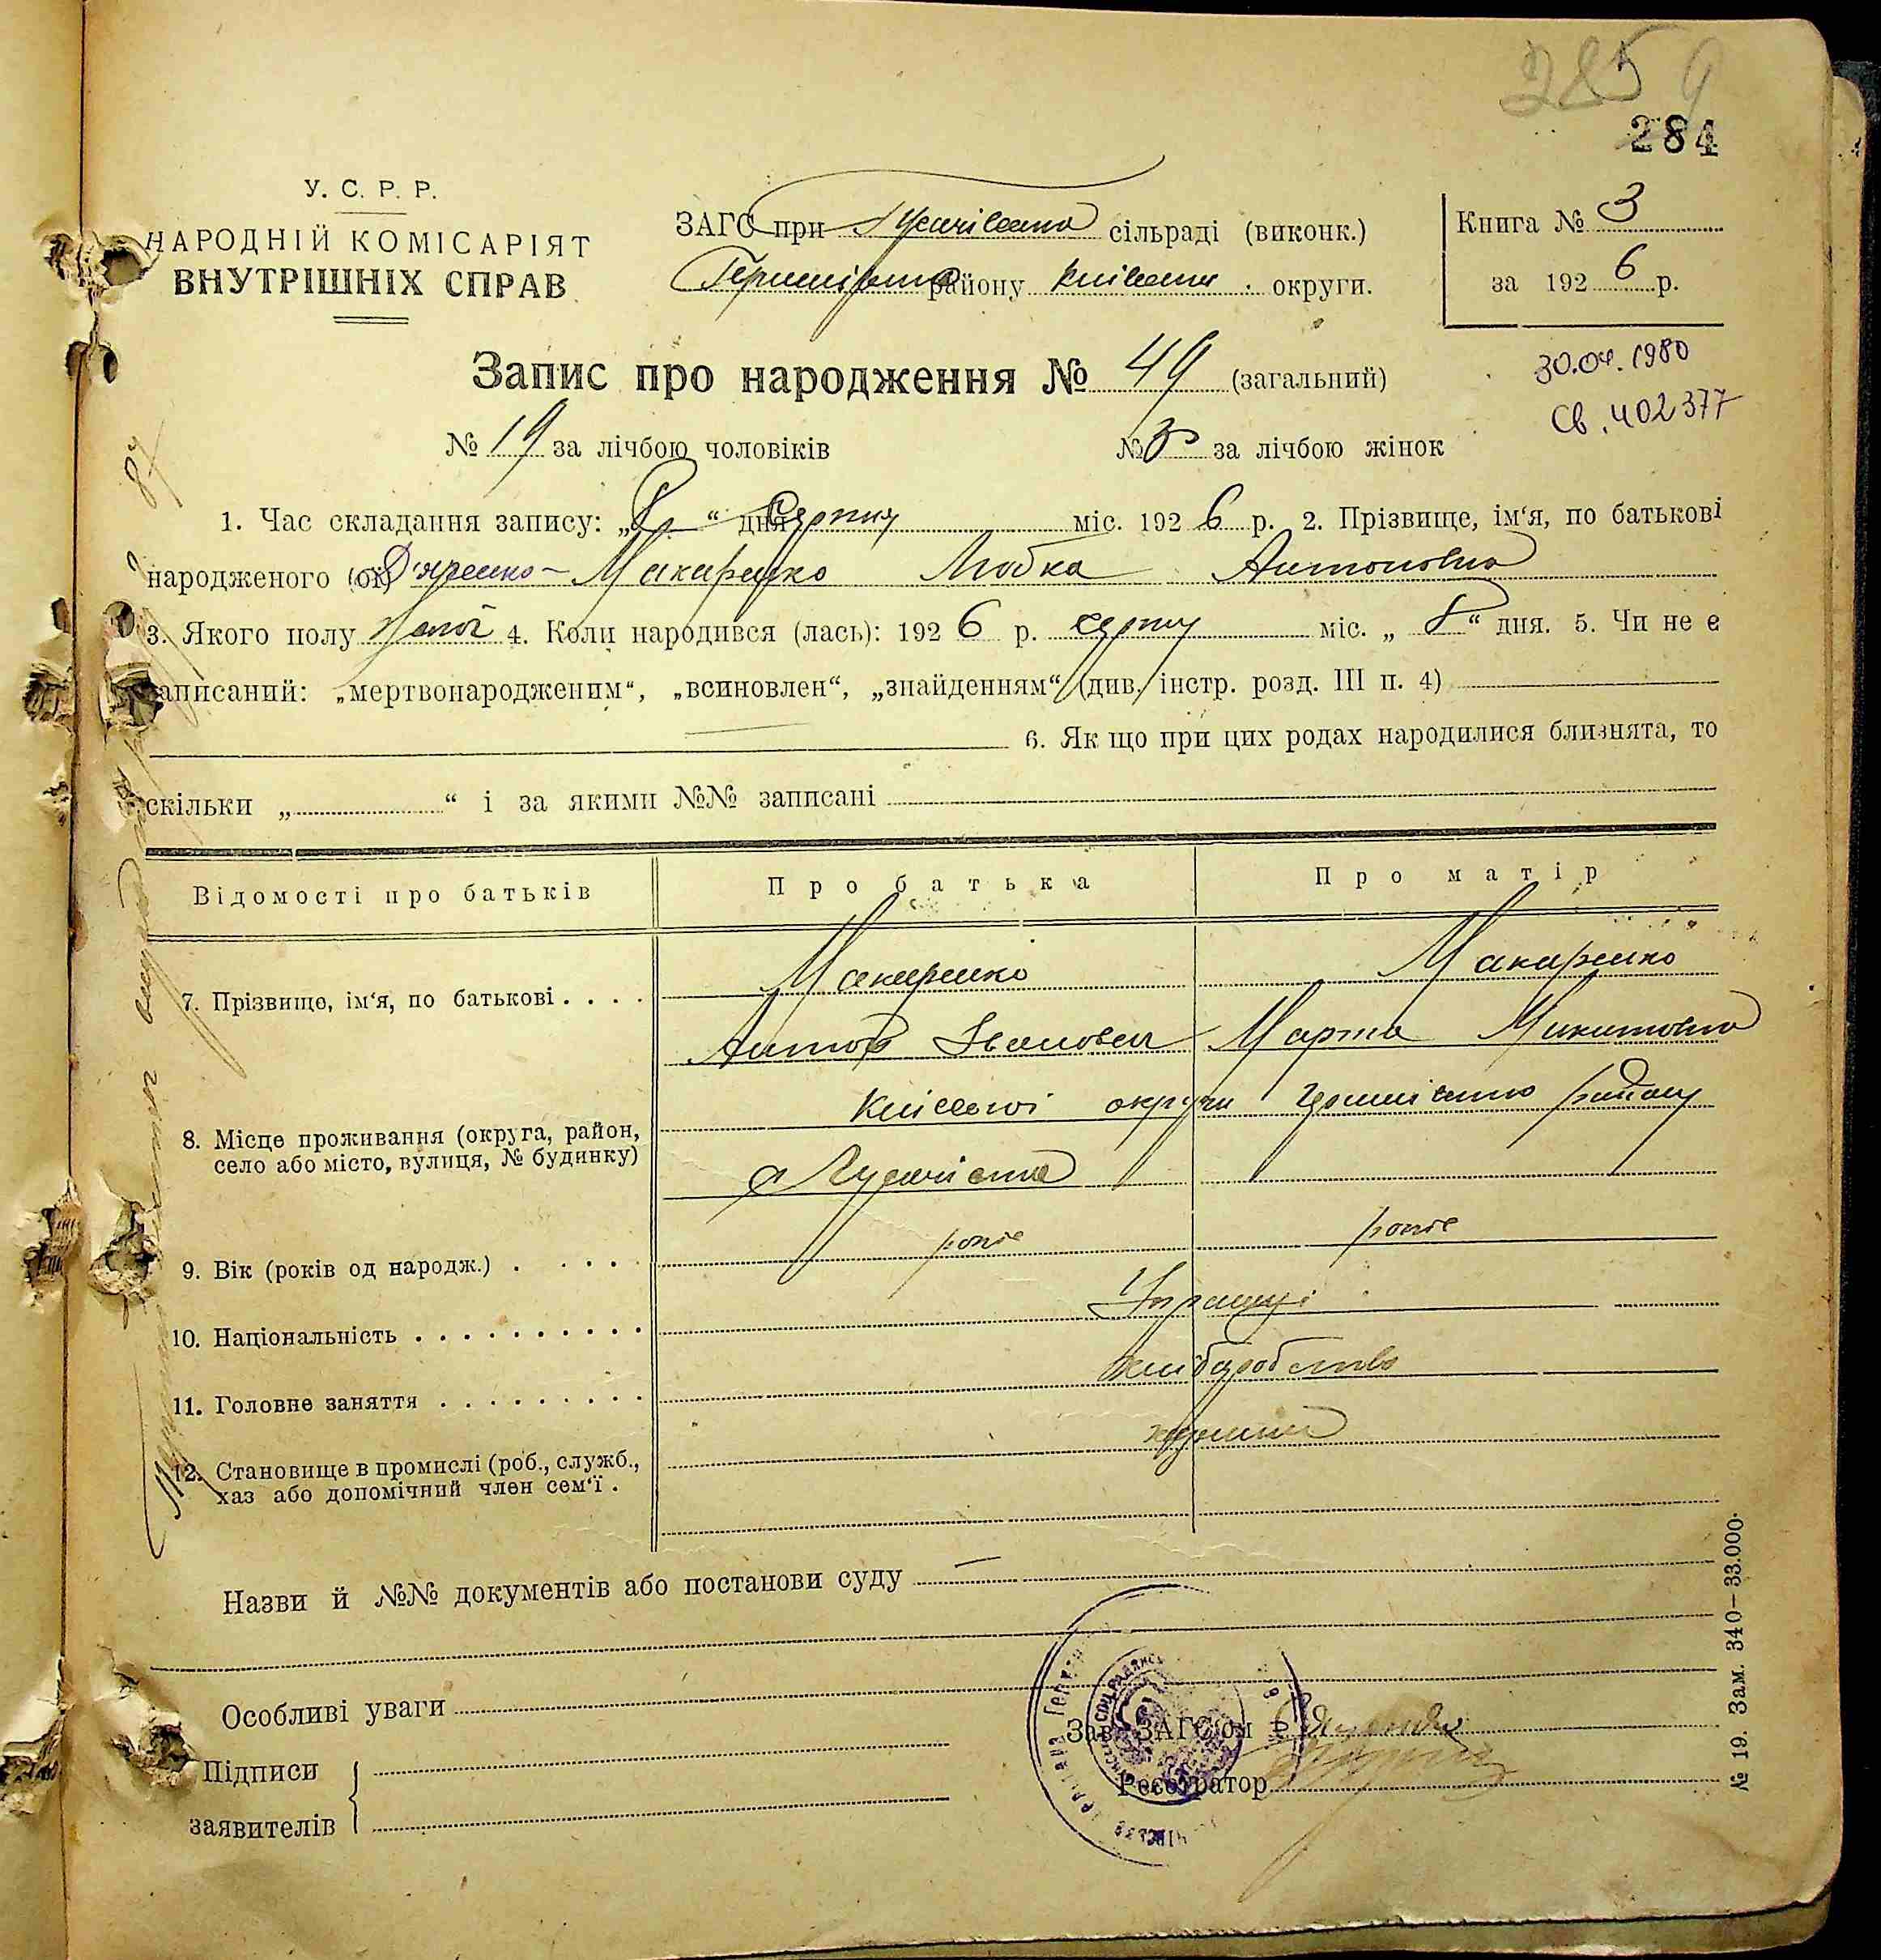 285 9
284
У. С. Р. Р.
НАРОДНІЙ КОМІСАРІЯТ
ВНУТРІШНІХ СПРАВ
ЗАГС при сільраді (виконк.)
району округи.
Книга № 3
за 1926 р.
Запис про народження № 49 (загальний)
30.04.1980
Св. 402377
№ 19 за лічбою чоловіків
№ за лічбою жінок
1. Час складання запису: „ “ дня Серпня міс. 1926 р. 2. Прізвище, ім‘я, по батькові
народженого (ої) Макаренко Любка Антоновна
3. Якого полу 4. Коли народився (лась): 1926 р. серпня міс. „ 8 “ дня. 5. Чи не є
записаний: „мертвонародженим“, „всиновлен“, „знайденням“ (див. інстр. розд. III п. 4)
6. Як що при цих родах народилися близнята, то
скільки „ “ і за якими №№ записані
Відомості про батьків
Про батька
Про матір
7. Прізвище, ім‘я, по батькові . . . .
Макаренко
Макаренко
Антон Іванович
Марта Микитовна
8. Місце проживання (округа, район,
село або місто, вулиця, № будинку)
Київської округи району
с
9. Вік (років од народж.) . . . . .
років
років
10. Національність . . . . . . . . . .
Українці
11. Головне заняття . . . . . . . . .
хліборобство
12. Становище в промислі (роб., служб.,
хаз або допомічний член сем‘ї .
Назви й №№ документів або постанови суду —
Особливі уваги
Зав. ЗАГС‘ом
Підписи
заявителів
Реєстратор
№ 19. Зам. 340—33.000.